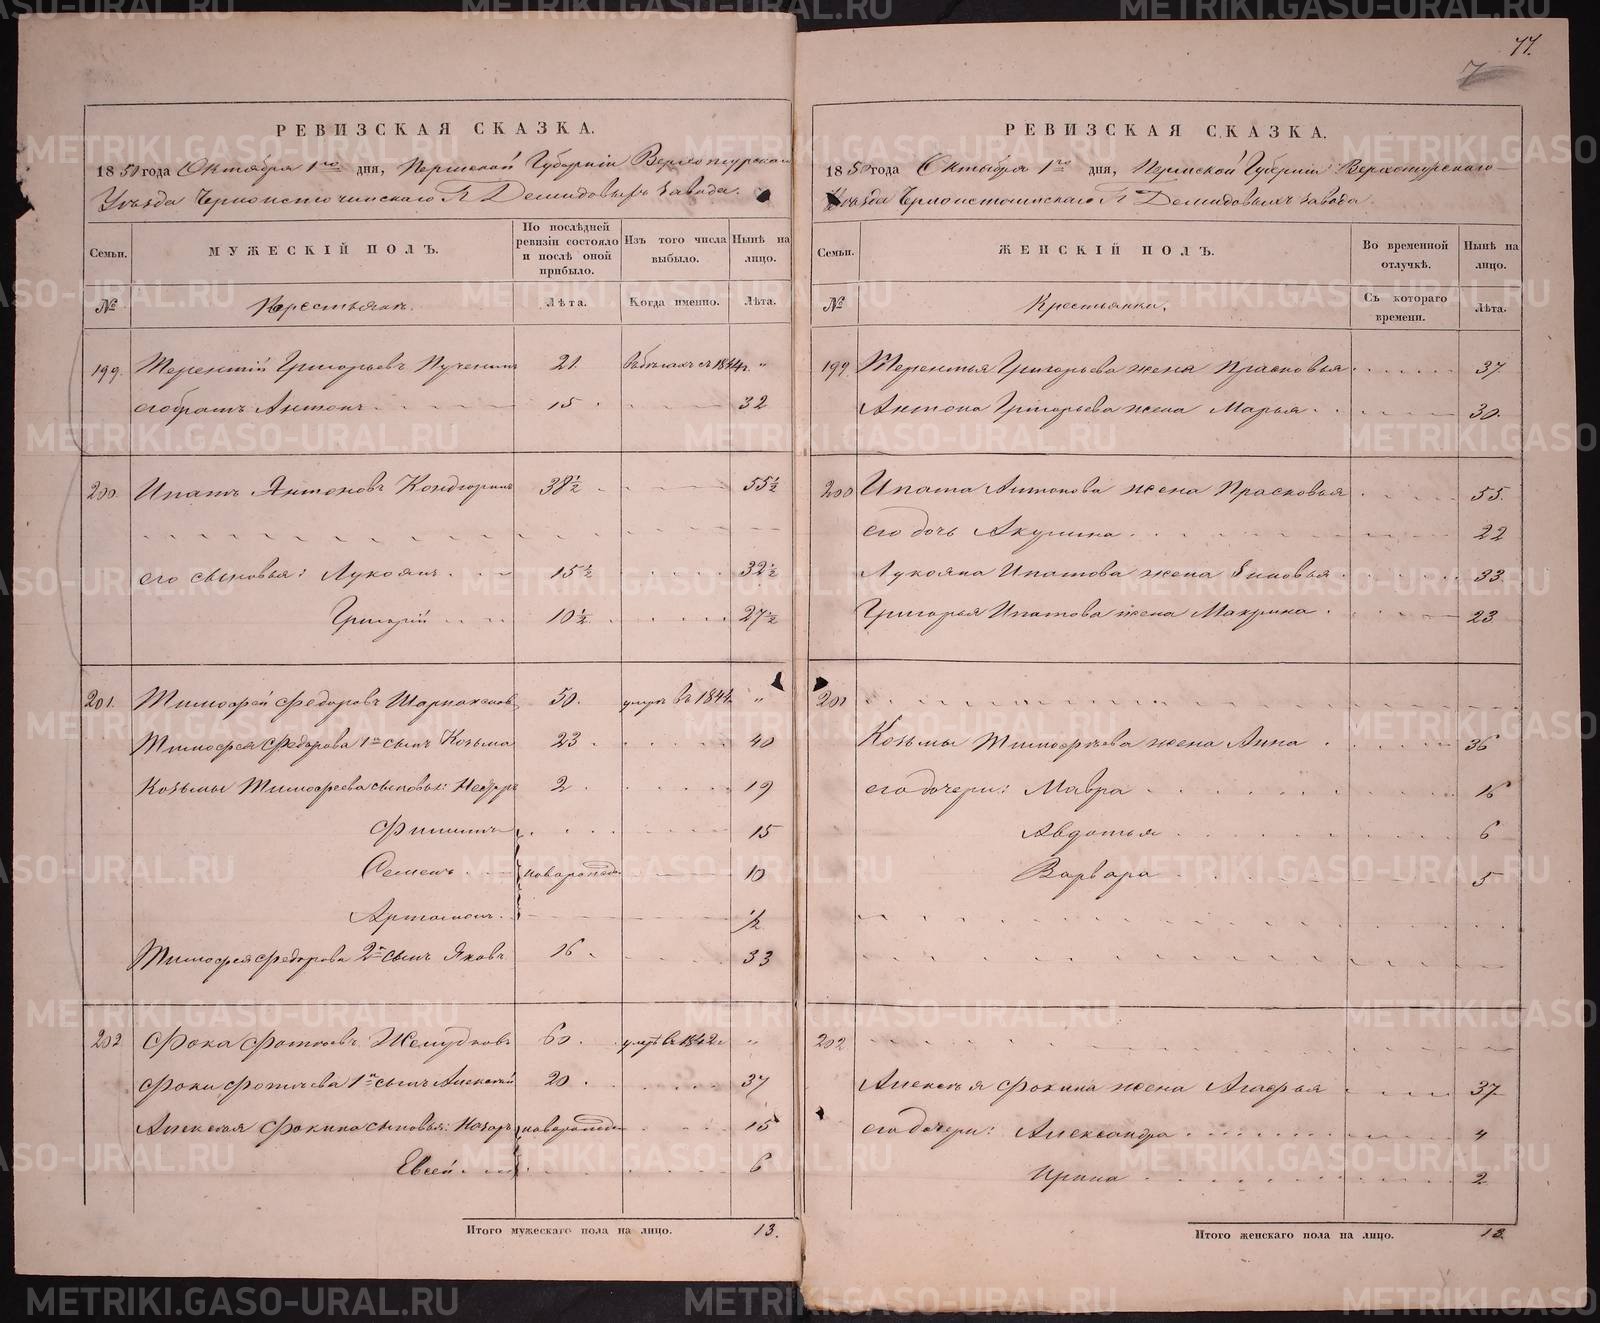 77.
7
РЕВИЗСКАЯ СКАЗКА.
1850 года Октября 1го дня, Пермской Губернiи Верхотурскаго
Уѣзда Черноисточинскаго Г.г. Демидовыхъ завода.
Семьи. МУЖЕСКIЙ ПОЛЪ. По послѣдней ревизiи состояло и послѣ оной прибыло. Изъ того числа выбыло. Нынѣ на лицо.
№ Крестьянъ. Лѣта. Когда именно. Лѣта.
199. Терентiй Григорьевъ 21. въ бѣгахъ съ 1844г. "
его братъ Антонъ 15 32
200. Ипатъ Антоновъ 38½ 55½
его сыновья: Лукоянъ 15½ 32½
Григорiй 10½ 27½
201. Тимофей Федоровъ 50. умеръ въ 1844. "
Тимофея Федорова 1й сынъ Козьма 23 40
Козьмы Тимофеева сыновья: 2 19
Филипъ 15
Семенъ новорожден 10
Артамонъ ½
Тимофея Федорова 2й сынъ Яковъ 16 33
202 Фока Фотiевъ 60. умеръ въ 1842г "
Фоки Фотiева 1й сынъ Алексѣй 20 37
Алексѣя Фокина сыновья: Назаръ новорожден 15
Евсей 6
Итого мужескаго пола на лицо. 13.
РЕВИЗСКАЯ СКАЗКА.
1850 года Октября 1го дня, Пермской Губернiи Верхотурскаго
Уѣзда Черноисточинскаго Г.г. Демидовыхъ завода.
Семьи. ЖЕНСКIЙ ПОЛЪ. Во временной отлучкѣ. Нынѣ на лицо.
№ Крестьянки. Съ котораго времени. Лѣта.
199 Терентья Григорьева жена Прасковья 37
Антона Григорьева жена Марья 30.
200 Ипата Антонова жена Прасковья 55.
его дочь Акулина 22
Лукояна Ипатова жена Зиновья 33
Григорья Ипатова жена Макрина 23
201
Козьмы Тимофѣева жена Анна 36
его дочери: Мавра 16
Авдотья 6
Варвара 5
202
Алексѣя Фокина жена Агафья 37
его дочери: Александра 4
Ирина 2
Итого женскаго пола на лицо. 13.
METRIKI.GASO-URAL.RU